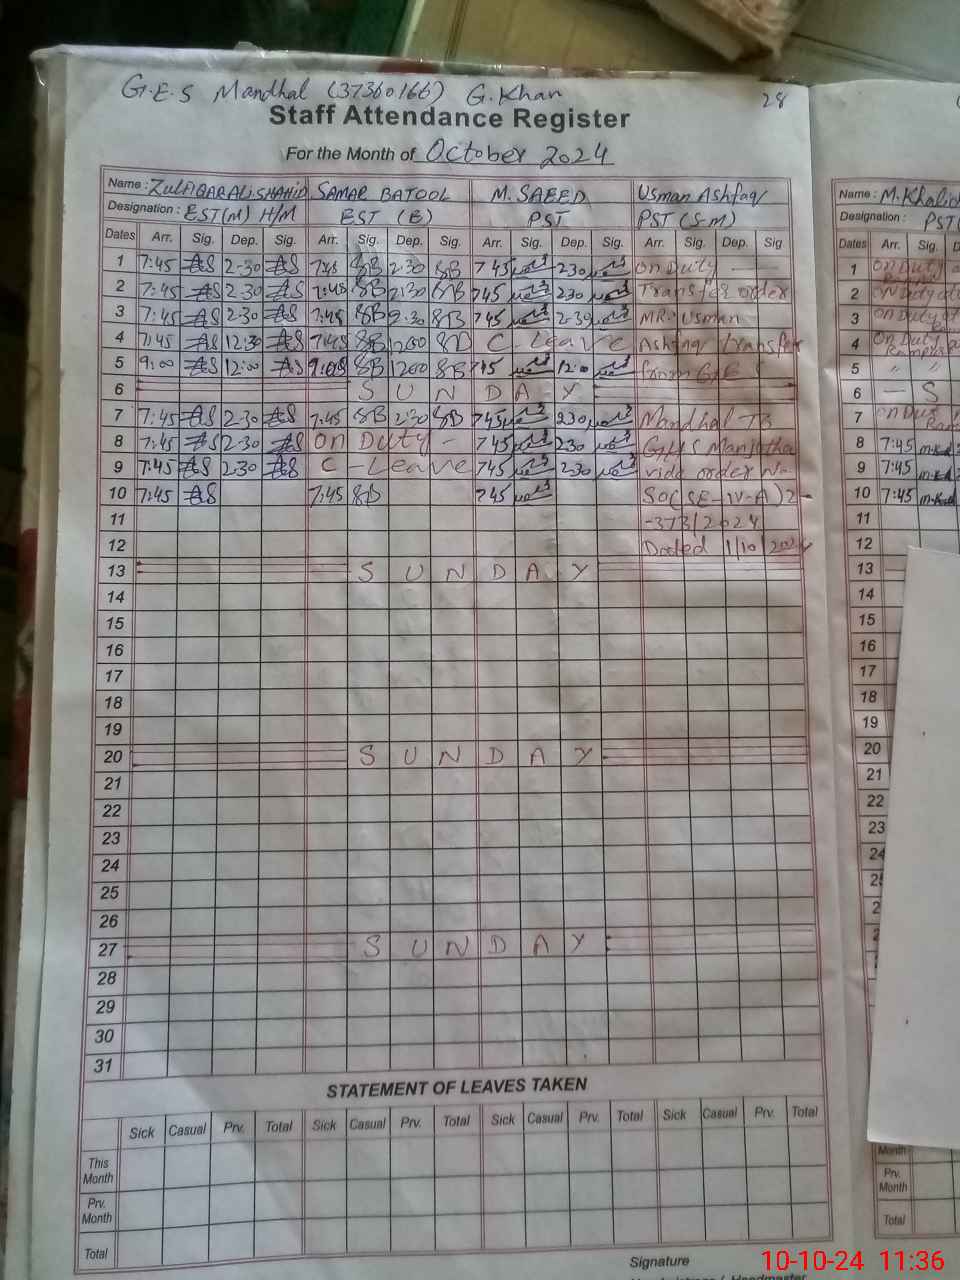 G.E.S Mandhal (37360166) G. Khan 28
Staff Attendance Register
For the Month of October 2024
Name : ZULFIQAR ALI SHAHID SAMAR BATOOL M. SAEED Usman Ashfaq
Designation : EST(M) H/M EST (E) PST PST (S-M)
Dates Arr. Sig. Dep. Sig. Arr. Sig. Dep. Sig. Arr. Sig. Dep. Sig. Arr. Sig. Dep. Sig
1 7:45 2-30 7:45 SB 2:30 SB 745 230 on Duty
2 7:45 2-30 7:45 SB 2:30 SB 745 230 Transfer order
3 7:45 2-30 7:45 SB 2:30 SB 745 2-30 MR. Usman
4 7:45 12:30 7:45 SB 1200 SB C Leave Ashfaq transfer
5 9:00 12:00 9:00 SB 1200 SB 745 12:00 from GES
6 SUNDAY
7 7:45 2-30 7:45 SB 2:30 SB 745 230 Mandhal To
8 7:45 2-30 On Duty - 745 230 GHS Manjotha
9 7:45 2-30 C - Leave 745 230 vide order No-
10 7:45 7:45 SB 745 SO(SE-IV-A)2-
11 -373/2024
12 Dated 1/10/2024
13 SUNDAY
14
15
16
17
18
19
20 SUNDAY
21
22
23
24
25
26
27 SUNDAY
28
29
30
31
STATEMENT OF LEAVES TAKEN
Sick Casual Prv. Total Sick Casual Prv. Total Sick Casual Prv. Total Sick Casual Prv. Total
This Month
Prv. Month
Total
Signature
Name : M. Khalid
Designation : PST
Dates Arr. Sig.
1 On Duty
2 On Duty
3 On Duty
4 On Duty
5 " "
6 — S
7 On Duty
8 7:45
9 7:45
10 7:45
11
12
13
14
15
16
17
18
19
20
21
22
23
24
Month
Prv. Month
Total
10-10-24 11:36